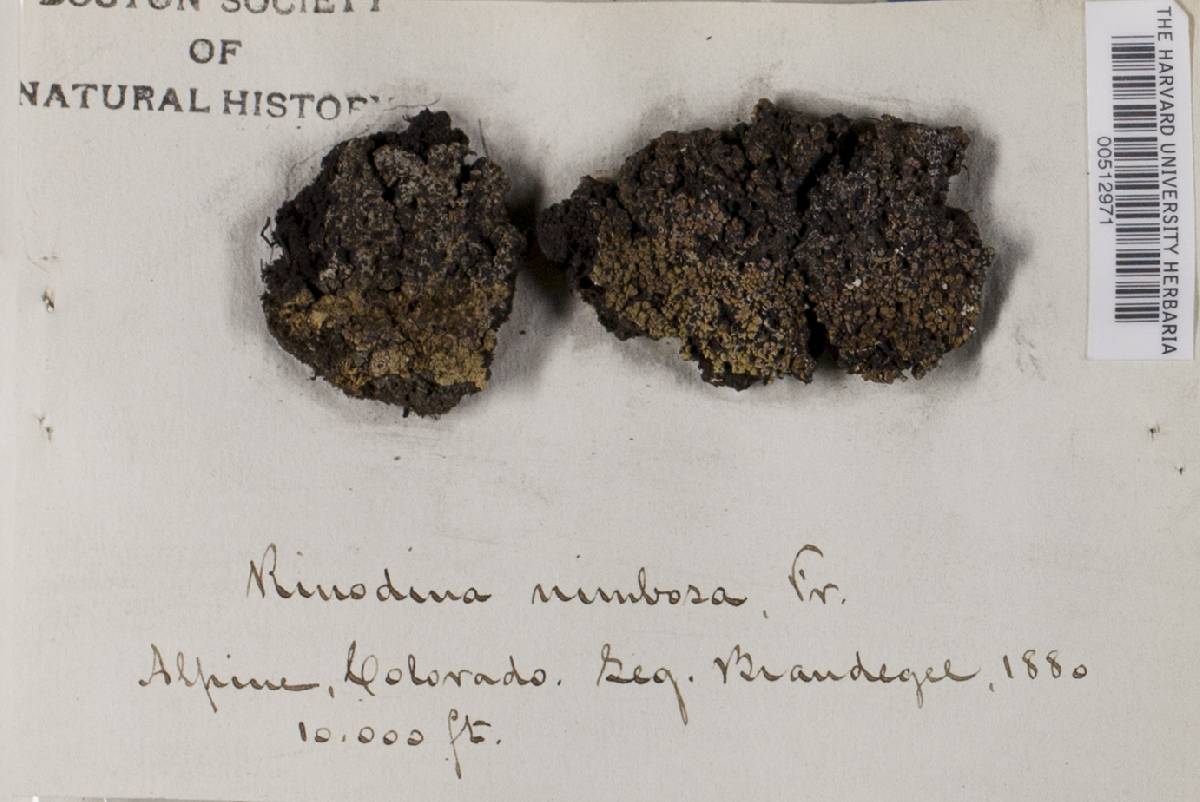 BOSTON SOCIETY
OF
NATURAL HISTORY
THE HARVARD UNIVERSITY HERBARIA
00512971
Rinodina nimbosa, Fr.
Alpine, Colorado. Leg. Brandegee, 1880
10.000 ft.